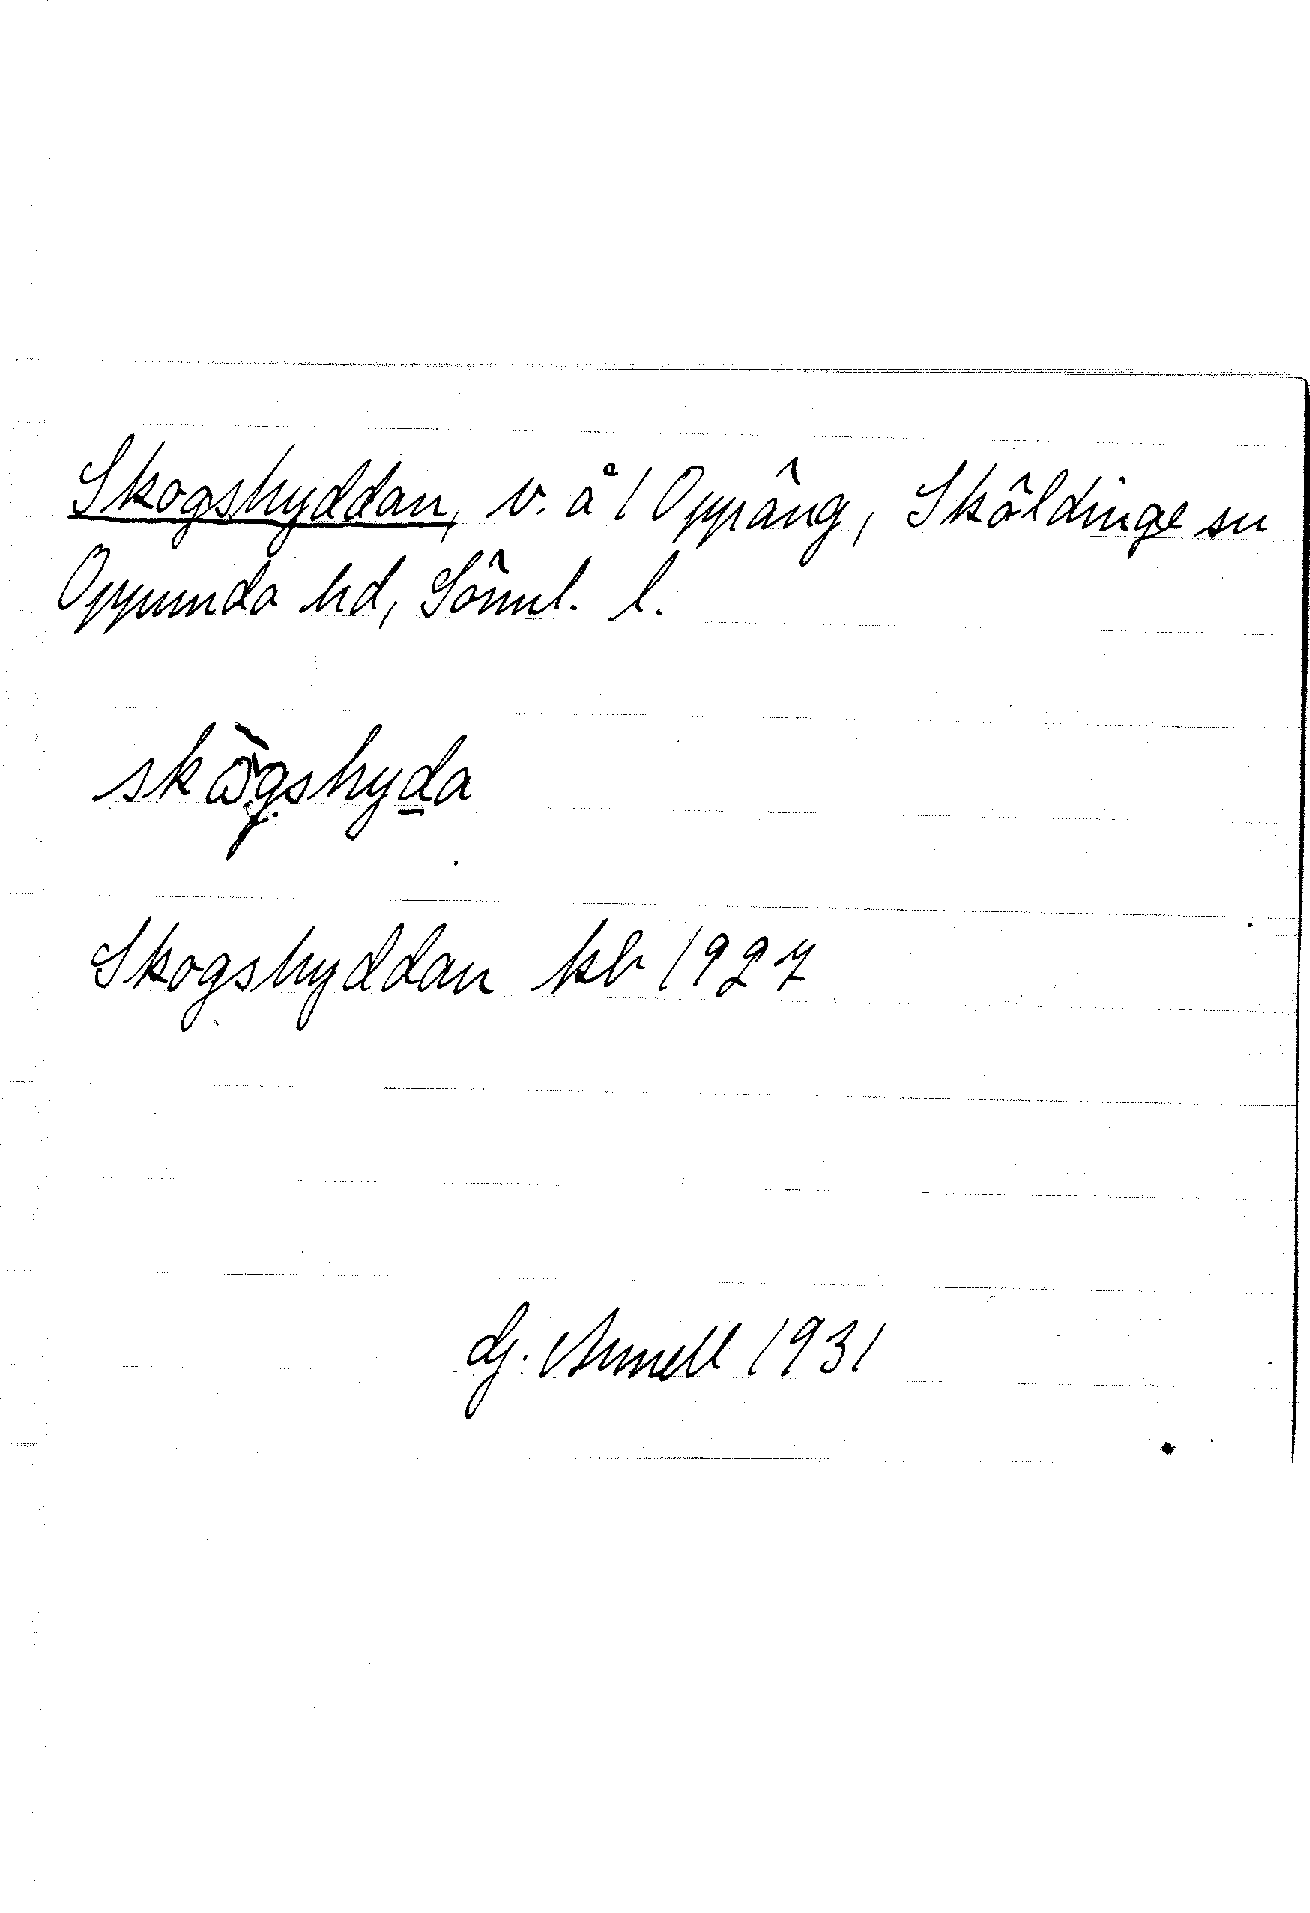 Skogshyddan, v. å 1 Oppäng, Sköldinge sn
Oppunda hd, Söml. l.
skògshyda
Skogshyddan kb 1927
Gj. Arnell 1931